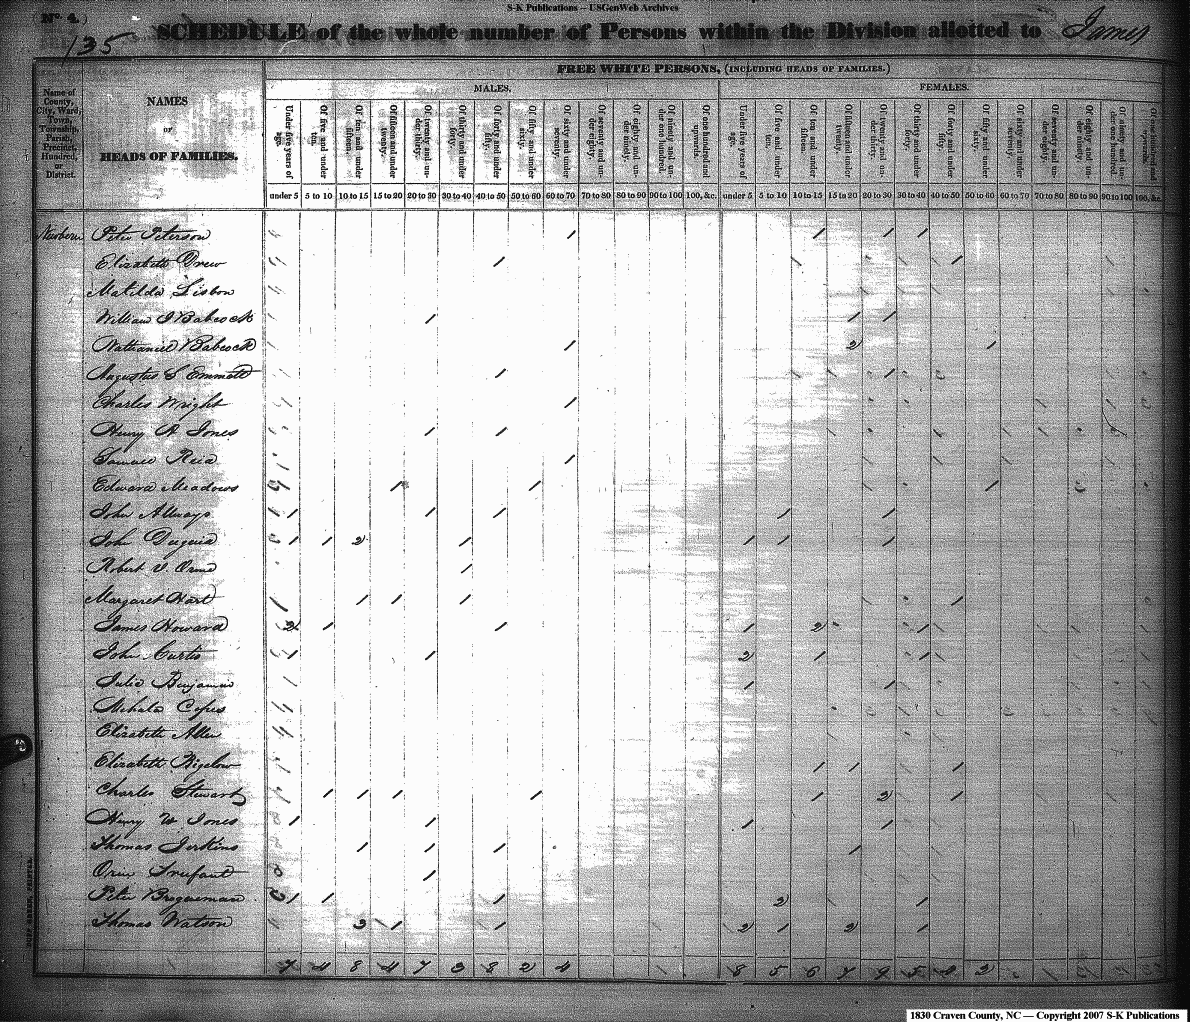 S-K Publications – USGenWeb Archives
No. 4.
135 SCHEDULE of the whole number of Persons within the Division allotted to James
FREE WHITE PERSONS, (INCLUDING HEADS OF FAMILIES.)
MALES. FEMALES.
Name of County, City, Ward, Town, Township, Parish, Precinct, Hundred, or District.
NAMES
or
HEADS OF FAMILIES.
Under five years of age. Of five and under ten. Of ten and under fifteen. Of fifteen and under twenty. Of twenty and under thirty. Of thirty and under forty. Of forty and under fifty. Of fifty and under sixty. Of sixty and under seventy. Of seventy and under eighty. Of eighty and under ninety. Of ninety and under one hundred. Of one hundred and upwards. Under five years of age. Of five and under ten. Of ten and under fifteen. Of fifteen and under twenty. Of twenty and under thirty. Of thirty and under forty. Of forty and under fifty. Of fifty and under sixty. Of sixty and under seventy. Of seventy and under eighty. Of eighty and under ninety. Of ninety and under one hundred.
under 5 5 to 10 10 to 15 15 to 20 20 to 30 30 to 40 40 to 50 50 to 60 60 to 70 70 to 80 80 to 90 90 to 100 100, &c. under 5 5 to 10 10 to 15 15 to 20 20 to 30 30 to 40 40 to 50 50 to 60 60 to 70 70 to 80 80 to 90 90 to 100 100, &c.
Newbern Peter Peterson 1 1 1 1
Elizabeth Drew 1 1
Matilda Lisbon
William I Babcock 1 1 1
Nathaniel Babcock 1 2 1
Augustus S Emmett 1 1
Charles Wright 1
Henry R Jones 1 1
Samuel Reid 1
Edward Meadows 1 1 1
John Allways 1 1 1 1 1
John Duguid 1 1 2 1 1 1 1
Robert V. Orme 1
Margaret Hart 1 1 1 1
James Howard 2 1 1 1 2 1
John Curtis 1 1 2 1 1
Julia Benjamin 1 1
Copes
Elizabeth Allen
Elizabeth Bigelow 1 1 1
Charles Stewart 1 1 1 1 1 2 1
Henry W Jones 1 1 1 1
Thomas Jerkins 1 1 1 1
1
Peter Brugueman 1 1 1 2 1
Thomas Watson 3 1 1 2 1 2 1
7 4 8 4 7 3 8 2 4 8 5 6 7 9 5 4 2
1830 Craven County, NC — Copyright 2007 S-K Publications